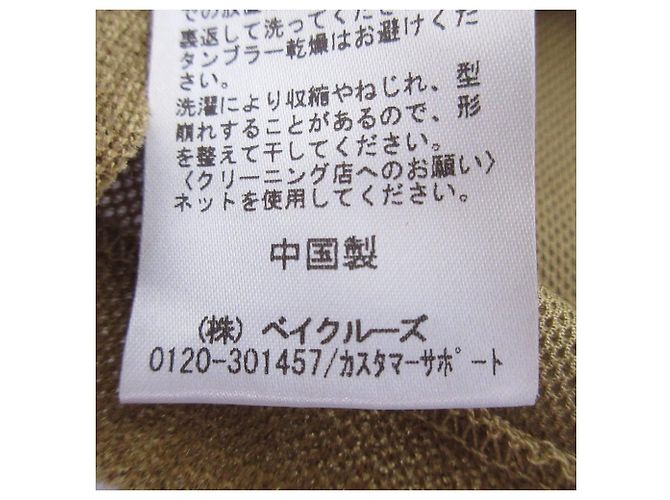 裏返して洗ってくださ
タンブラー乾燥はお避けくだ
さい。
洗濯により収縮やねじれ、型
崩れすることがあるので、形
を整えて干してください。
〈クリーニング店へのお願い〉
ネットを使用してください。
中国製
(株) ベイクルーズ
0120-301457/カスタマーサポート